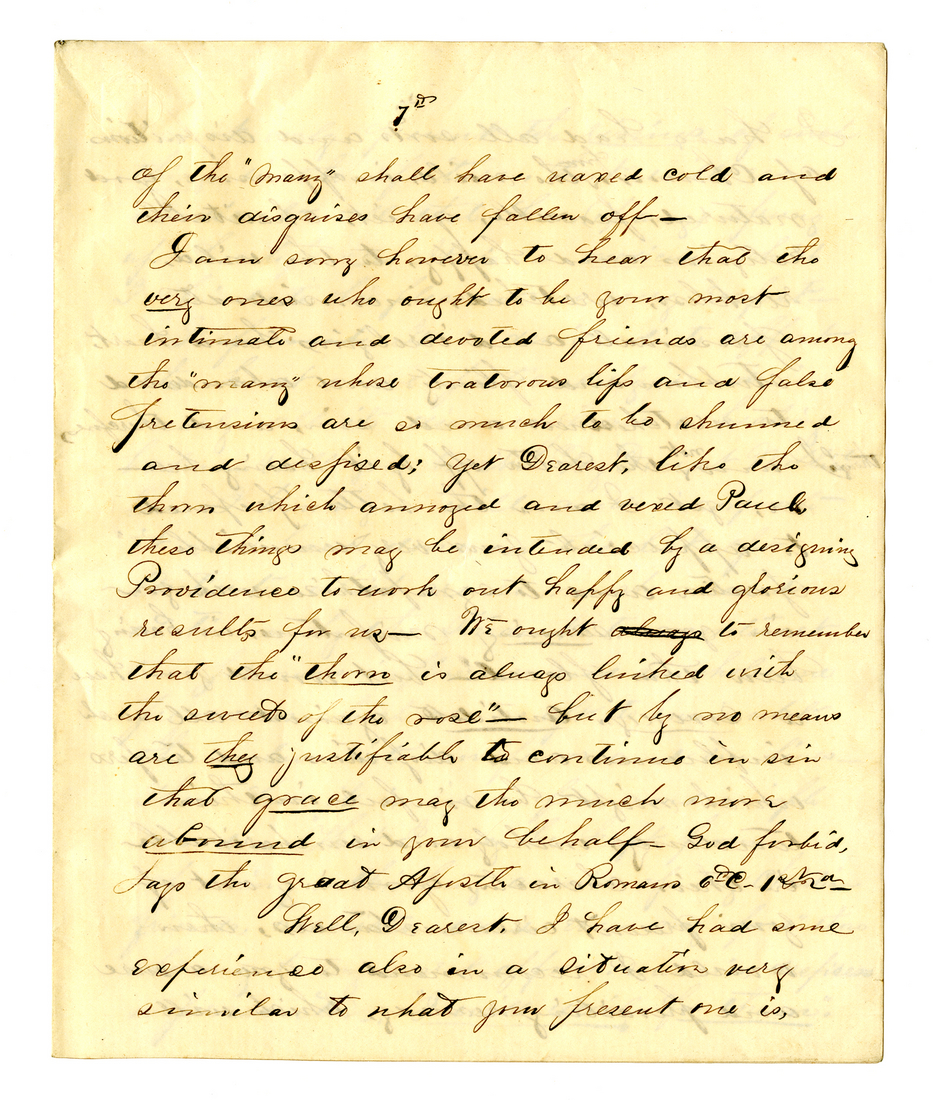 7th
of the "many" shall have waxed cold and
their disguises have fallen off—
I am sorry however to hear that the
very ones who ought to be your most
intimate and devoted friends are among
the "many" whose tratorous lips and false
pretensions are so much to be shunned
and despised; yet Dearest, like the
thorn which annoyed and vexed Paul
these things may be intended by a designing
Providence to work out happy and glorious
results for us— We ought always to remember
that the "thorn is always linked with
the sweets of the rose"— but by no means
are they justifiable to continue in sin
that grace may the much more
abound in your behalf— God forbid,
says the great Apostle in Romans 6th C- 1st
Well, Dearest, I have had some
experience also in a situation very
similar to what your present one is,